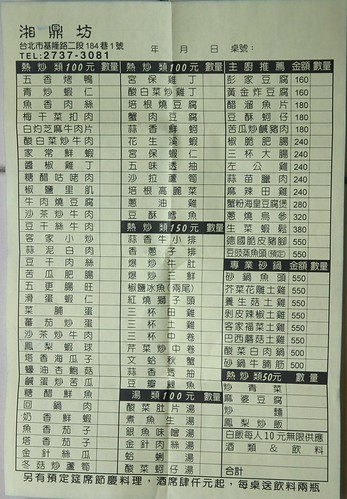 湘鼎坊
台北市基隆路二段184巷1號
TEL:2737-3081
年 月 日 桌號:
熱炒類100元 數量
五香烤鴨
青炒蝦仁
魚香肉絲
梅干菜扣肉
白灼芝麻牛肉片
酸白菜炒牛肉
家常鮮蝦
醬椒雞丁
糖醋咕咾肉
椒鹽里肌
牛肉燒豆腐
沙茶炒牛肉
豆干絲牛肉
客家小炒
蒜泥白肉
豆干肉絲
苦瓜肥腸
五更腸旺
滑蛋蝦仁
菜脯蛋
蕃茄炒蛋
沙茶炒牛肉
鳳梨蝦球
塔香海瓜子
蠔油杏鮑菇
鹹蛋炒苦瓜
糖醋鮮魚
回鍋肉
奶香鮮蝦
魚香茄子
塔香茄子
金針絲瓜
冬菇炒蘿蔔
熱炒類100元 數量
宮保雞丁
酸白菜炒雞丁
培根燒豆腐
蟹肉豆腐
蒜香鮮蚵
花生溪蝦
五味透抽
沙拉蘆筍
培根高麗菜
蔥油雞
豆酥鱈魚
熱炒類150元 數量
蒜香牛小排
香蔥子排
蔥爆蝦
椒鹽冰魚(兩尾)
紅燒獅子頭
三杯田雞
三杯中卷
芹菜炒中卷
文蛤秋蟹
蒜香透抽
豆瓣鯉魚
湯類100元 數量
酸菜肚片湯
煮魚生湯
銀魚味噌湯
金針肉絲湯
蛤蜊湯
酸菜蚵仔湯
主廚推薦 金額 數量
彭家豆腐 160
黃金炸豆腐 160
醋溜魚片 180
豆豉鮮蚵 160
苦瓜炒鹹豬肉 180
椒脆肥腸 240
三杯大腸 240
左公雞 240
蒜苗臘肉 240
麻辣田雞 240
蟹粉海皇豆腐煲 280
蔥燒烏參 320
生菜蝦鬆 380
德國脆皮豬腳 550
豆豉蒸魚頭(預定) 550
專業砂鍋 金額 數量
砂鍋魚頭 550
芥菜花雕土雞 550
養生菇土雞 550
剝皮辣椒土雞 550
客家福菜土雞 550
巴西蘑菇土雞 550
酸菜白肉鍋 500
砂鍋牛腩筋 500
熱炒類50元 數量
炒青菜
麻婆豆腐
炒麵
鳳梨炒飯
白飯每人10元無限供應
酒類&飲料
合計
另有預定筵席節慶料理,酒席肆仟元起,每桌送飲料兩瓶